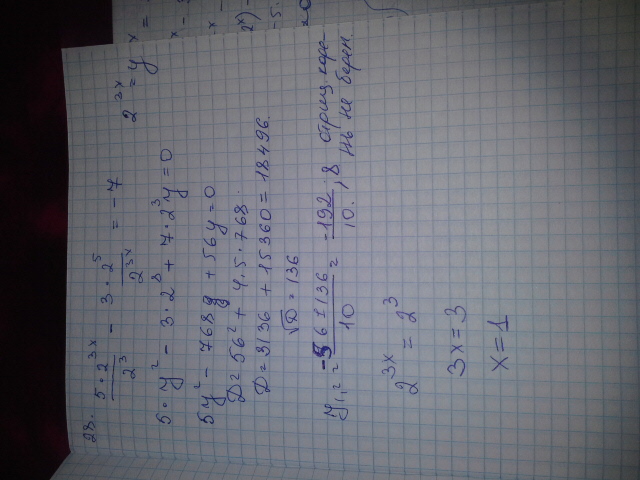 28. 5·2^3x / 2^3 - 3·2^5 / 2^3x = -7    2^3x = y
5·y² - 3·2^8 + 7·2^3 y = 0
5y² - 768 + 56y = 0
D = 56² + 4·5·768
D = 3136 + 15360 = 18496.
√D = 136
y1,2 = -56±136 / 10 = -192 / 10. ; 8 отриц. коре-
нь не берем.
2^3x = 2^3
3x = 3
x = 1